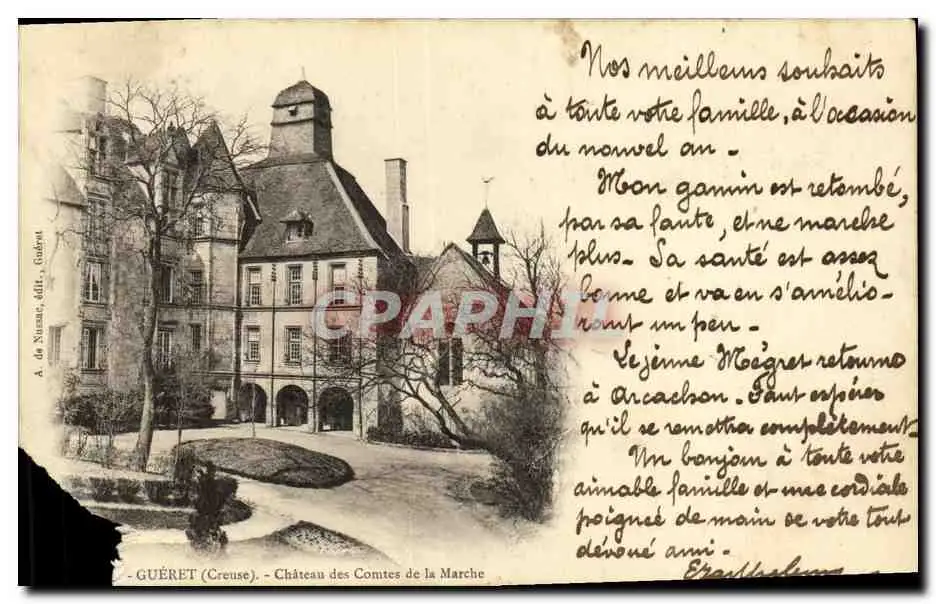 Nos meilleurs souhaits
à toute votre famille, à l'occasion
du nouvel an -
Mon gamin est retombé,
par sa faute, et ne marche
plus - Sa santé est assez
bonne et va en s'amélio-
rant un peu -
Le jeune Mégret retourne
à Arcachon. Faut espérer
qu'il se remettra complètement.
Un bonjour à toute votre
aimable famille et une cordiale
poignée de main de votre tout
dévoué ami -
A. de Nussac, édit., Guéret
CPARHIL
- GUÉRET (Creuse). - Château des Comtes de la Marche